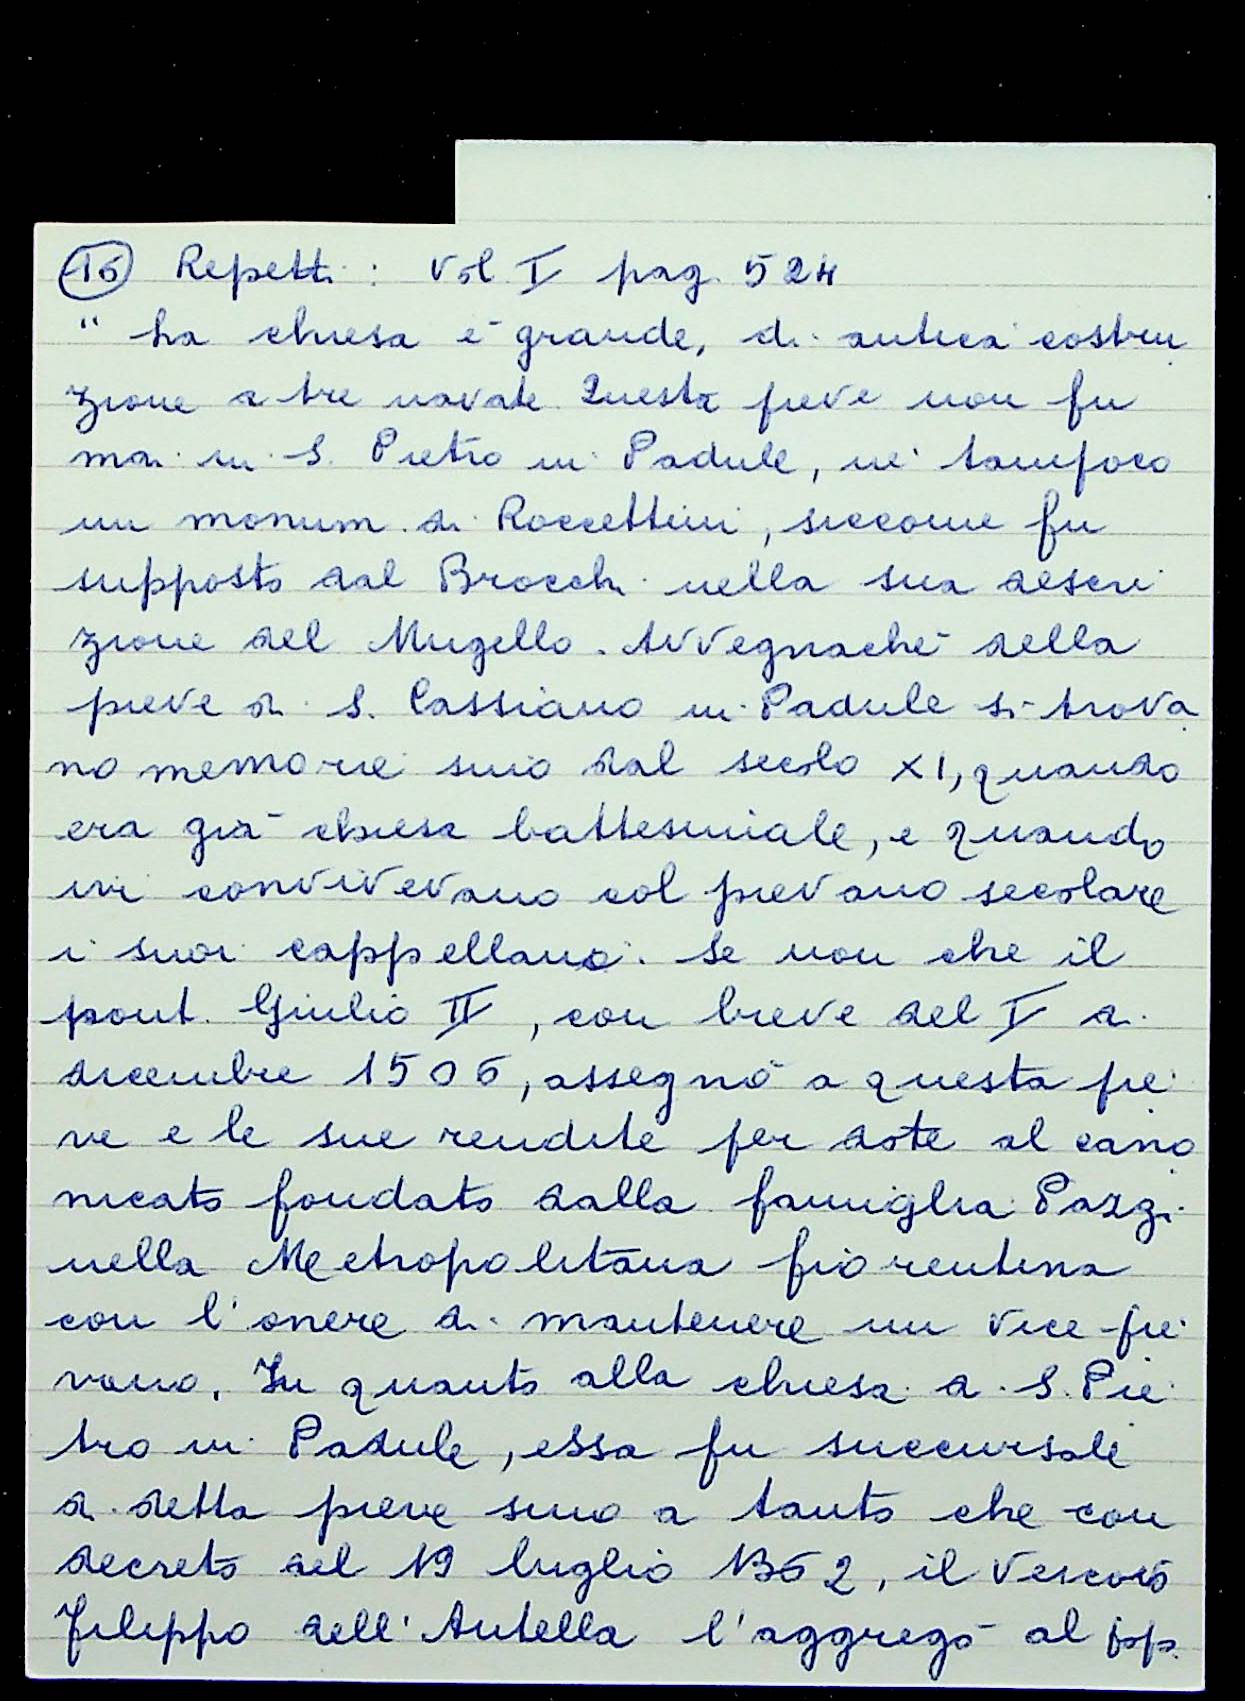 16 Repetti: Vol I pag. 524
" La chiesa è grande, di antica costru
zione a tre navate. Questa pieve non fu
mai in S. Pietro in Padule, nè tampoco
un monum. di Roccettini, siccome fu
supposto dal Brocchi nella sua descri
zione del Mugello. Avvegnachè della
pieve di S. Cassiano in Padule si trova
no memorie sino dal secolo XI, quando
era già chiesa battesimale, e quando
ivi convivevano col pievano secolare
i suoi cappellani. Se non che il
pont. Giulio II, con breve del I di
dicembre 1506, assegnò a questa pie
ve e le sue rendite per dote al cano
nicato fondato dalla famiglia Pazzi
nella Metropolitana fiorentina
con l'onere di mantenere un vice-pie
vano. In quanto alla chiesa di S. Pie
tro in Padule, essa fu succursale
di detta pieve sino a tanto che con
decreto del 19 luglio 1362, il Vescovo
Filippo dell'Antella l'aggregò al pop.